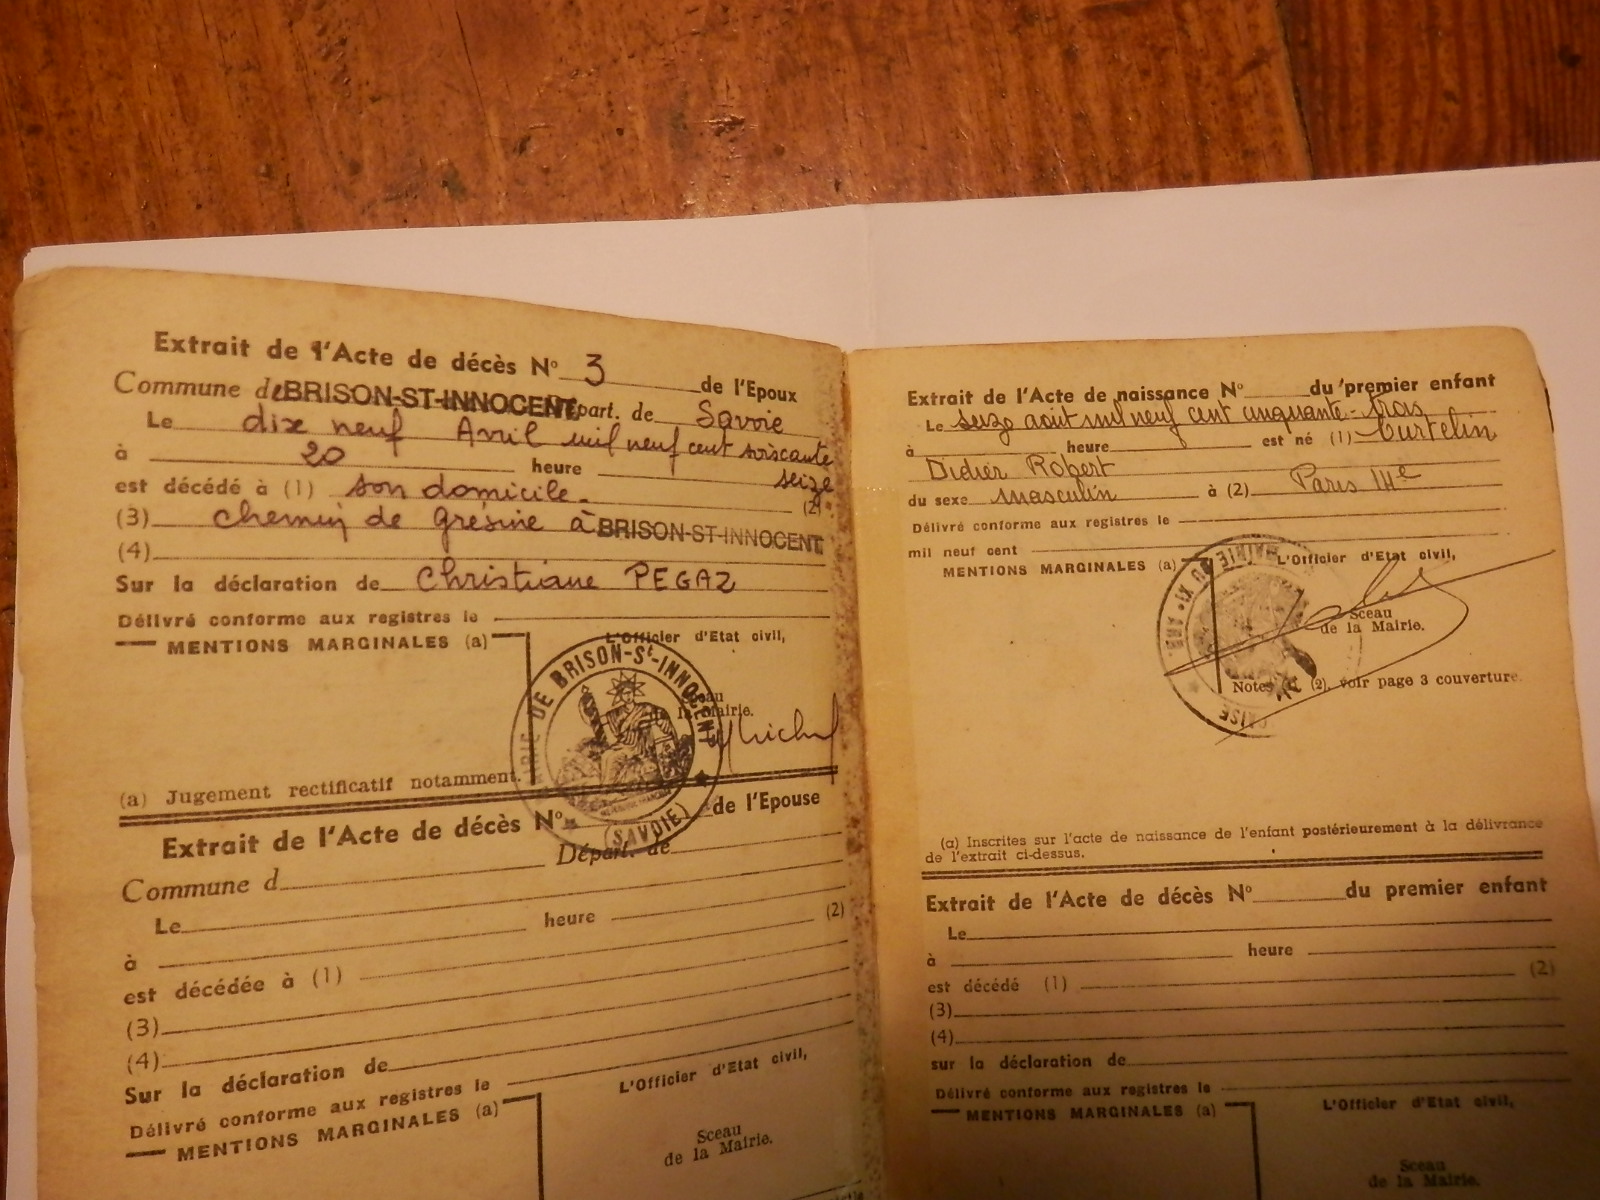 Extrait de l'Acte de décès Nº 3 de l'Epoux
Commune de BRISON-ST-INNOCENT Départ. de Savoie
Le dix neuf Avril mil neuf cent soixante
seize
à 20 heure
est décédé à (1) son domicile. (2)
(3) chemin de Grésine à BRISON-ST-INNOCENT
(4)
Sur la déclaration de Christiane PEGAZ
Délivré conforme aux registres le
MENTIONS MARGINALES (a)
L'Officier d'Etat civil,
Sceau
de la Mairie.
MAIRIE DE BRISON-St-INNOCENT
(SAVOIE)
(a) Jugement rectificatif notamment.
Extrait de l'Acte de décès Nº de l'Epouse
Commune d Départ. de
Le
à heure (2)
est décédée à (1)
(3)
(4)
Sur la déclaration de
Délivré conforme aux registres le
MENTIONS MARGINALES (a)
L'Officier d'Etat civil,
Sceau
de la Mairie.
Extrait de l'Acte de naissance Nº du premier enfant
Le seize août mil neuf cent cinquante-trois
à heure est né (1)
Didier Robert
du sexe masculin à (2) Paris
Délivré conforme aux registres le
mil neuf cent
MENTIONS MARGINALES (a)
L'Officier d'Etat civil,
Sceau
de la Mairie.
MAIRIE DU XIe ARR.
Notes (1), (2), voir page 3 couverture.
(a) Inscrites sur l'acte de naissance de l'enfant postérieurement à la délivrance
de l'extrait ci-dessus.
Extrait de l'Acte de décès Nº du premier enfant
Le
à heure
est décédé (1) (2)
(3)
(4)
sur la déclaration de
Délivré conforme aux registres le
MENTIONS MARGINALES (a)
L'Officier d'Etat civil,
Sceau
de la Mairie.